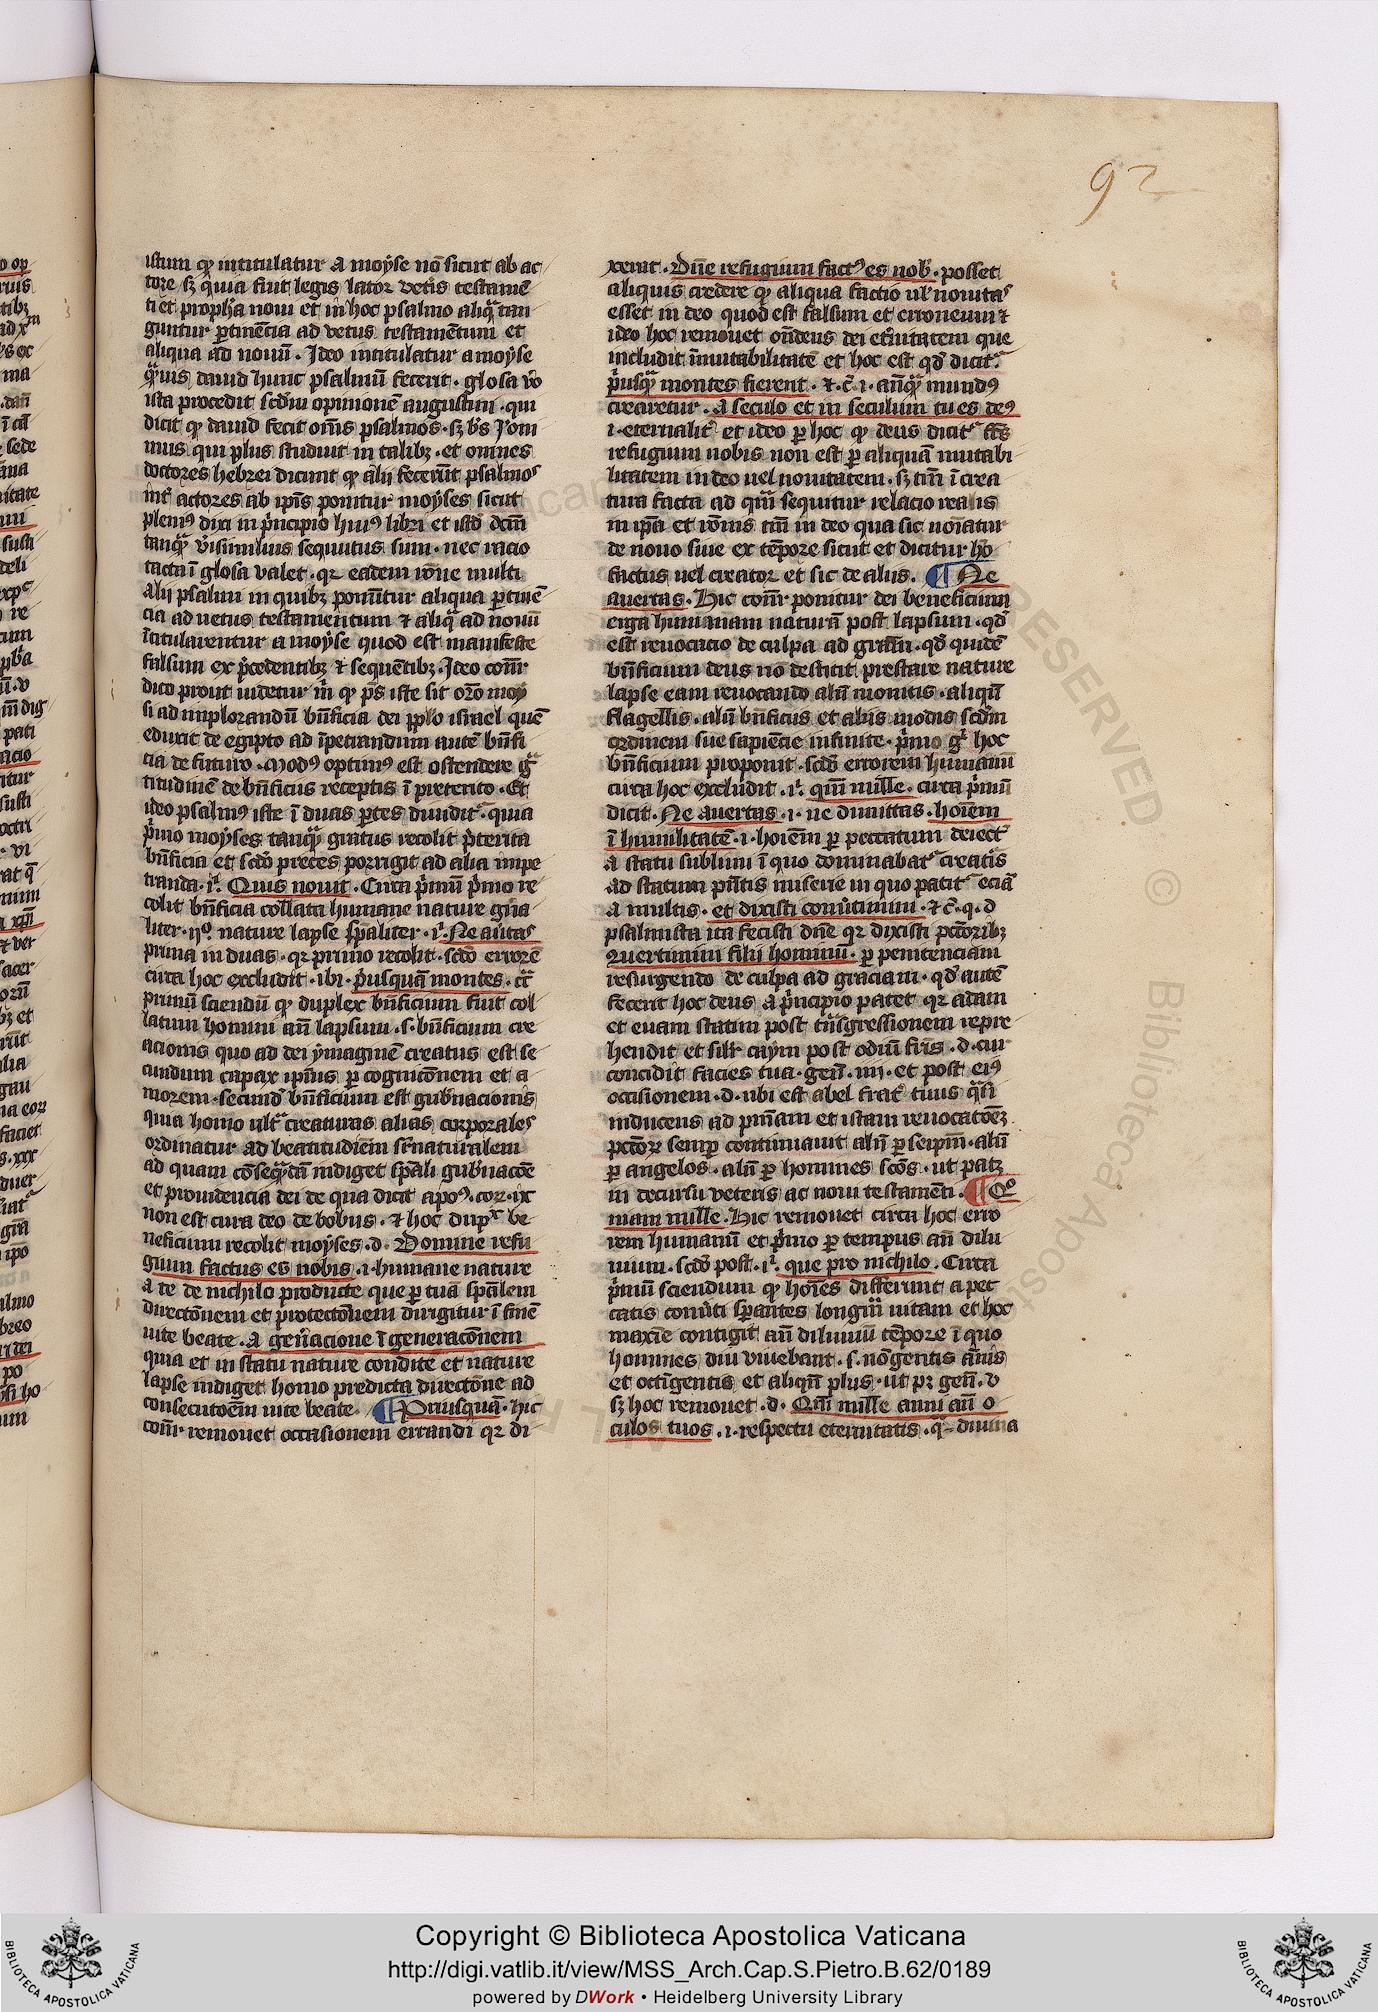 92
istum qͥ intitulatur a moyse nō sicut ab ac
tore sꝫ quia fuit legis lator vetͥs testamē
ti et prophͣa noui et in hoc psalmo aliqͣ tan
guntur ꝑtinēcia ad vetus testamentum et
aliqua ad nouū . Ideo intitulatur a moyse
qͣuis dauid hunc psalmū fecerit . glosa vō
ista procedit scdm opinionē augustini . qui
dicit qͥ dauid fecit om̄s psalmos . sꝫ bs Jeroni
mus qui plus studuit in talibꝫ . et omnes
doctores hebrei dicunt qͥ alii fecerūt psalmos
int̄ actores ab ip̄is ponitur moyses sicut
plenius dixi in pͥncipio huiꝰ libri et istū dcm̄
tanqͣ vͥsimilius sequutus sum . nec racio
tacta ī glosa valet . qꝛ eadem rōne multi
alii psalmi in quibꝫ ponūtur aliqua ꝑtinē
cia ad uetus testamentum ⁊ aliqͣ ad nouū
ītitularentur a moyse quod est manifeste
falsum ex pͥcedentibꝫ ⁊ sequētibꝫ . Ideo com̄r
dico prout uidetur mͥ qͥ pͣs iste sit oro moy
si ad implorandū bn̄ficia dei pplo israel quē
eduxit de egipto ad īpetrandum autē bn̄fi
cia de futuro . modꝰ optimꝰ est ostendere gͣ
titudinē de bn̄ficiis receptis ī preterito . Et
ideo psalmꝰ iste ī duas ꝑtes diuiditᷣ . quia
pͥmo moyses tanqͣ gratus recolit pͥterita
bn̄ficia et scdo preces porrigit ad alia impe
tranda . iᷓ . Quis nouit . Circa pͥmū pͥmo re
colit bn̄ficia collata humane nature gn̄a
liter . ijͦ nature lapse spāliter . iᷓ . Ne au̾tas
prima in duas . qꝛ primo recolit . scdo errorē
circa hoc excludit . ibi . pͥusquā montes . cͣ
primū sciendū qͥ duplex bn̄ficium fuit col
latum homini an̄ lapsum . s . bn̄ficium cre
acionis quo ad dei ymaginē creatus est se
cundum capax ipͥius ꝑ cognicōnem et a
morem . secund bn̄ficium est gub̾nacionis
quia homo ultͣ creaturas alias corporales
ordinatur ad beatitudinem sr̄naturalem
ad quam cōsequēdā indiget spāli gub̾nacōe
et prouidencia dei de qua dicit apoꝰ . coꝛ . ix
non est cura deo de bobus . ⁊ hoc dupͣx be
neficium recolit moyses . d . Domine refu
gium factus es nobis . i . humane nature
a te de nichilo producte que ꝑ tuā spālem
directōnem et protectōnem dirigitur ī finē
uite beate . a gen̄acione ī generacōnem
quia et in statu nature condite et nature
lapse indiget homo predicta directōne ad
consecutoēm uite beate . ¶ Priusquā . hic
com̄r remouet occasionem errandi qꝛ di
xerat . Dn̄e refugium factꝰ es nob̾ . posset
aliquis credere qͥ aliqua factio ul̾ nouitas
esset in deo quod est falsum et erroneum ⁊
ideo hoc remouet on̄dens dei et̾nitatem que
includit īmutabilitatē et hoc est qd̄ dicitᷣ
pͥusqͣ montes fierent . ⁊ c̄ . i . an̄qͣ mundꝰ
crearetur . a seculo et in seculum tu es deꝰ
i . eternalitᷣ et ideo ꝑ hoc qͥ deus dicitᷣ fcs̄
refugium nobis non est ꝑ aliquā mutabi
litatem in deo uel nouitatem . sꝫ tm̄ ī crea
tura facta ad quā sequitur relacio realis
in ipā et rōnis tm̄ in deo qua sic noīatur
de nouo siue ex tēpore sicut et dicitur ho
factus uel creator et sic de aliis . ¶ Ne
auertas . Hic com̄r ponitur dei beneficium
erga humanam naturā post lapsum . qd̄
est reuocacio de culpa ad grām . qd̄ quidē
bn̄ficium deus nō desticit prestare nature
lapse eam reuocando aliū monitis . aliqn̄
flagellis . aliū bn̄ficiis et aliis modis scdm̄
ordinem sue sapiēcie infinite . pͥmo gͥ hoc
bn̄ficium proponit . scdo errorem humanū
circa hoc excludit . iᷓ . qm̄ mille . circa pͥmū
dicit . Ne auertas . i . ne dimittas . hoīem
ī humilitatē . i . hoīem ꝑ peccatum deiectū
a statu sublimi ī quo dominabatᷣ creatis
ad statum pn̄tis miserie in quo patitᷣ eciā
a multis . et dixisti conu̾timini . ⁊ c̄ . q . d
psalmista ita fecisti dn̄e qꝛ dixisti pctōribꝫ
auertimini filii hominū . ꝑ penitenciam
resurgendo de culpa ad graciam . qd̄ autē
fecerit hoc deus a pͥncipio patet qꝛ adam
et euam statim post tn̄sgressionem repre
hendit et silr̄ caym post odiū frīs . d . cur
concidit facies tua . gen̄ . iiij . et post eiꝰ
occisionem . d . ubi est abel fratᷣ tuus qͣsi
inducens ad pn̄iam et istam reuocatōeꝫ
pctōꝝ semꝑ continuauit aliū ꝑ seipm̄ . aliū
ꝑ angelos . aliū ꝑ homines scōs . ut patꝫ
in decursu veteris ac noui testamēti . ¶ Qͦ
niam mille . Hic remouet circa hoc erro
rem humanū et pͥmo ꝑ tempus an̄ dilu
uium . scdo post . iᷓ . que pro nichilo . Circa
pͥmū sciendum qͥ hoīes differunt a pec
catis conu̾ti sꝑantes longā uitam et hoc
maxīe contigit an̄ diluuiū tēpore ī quo
homines diu viuebant . s . nōgentis annis
et octīgentis et aliqn̄ plus . ut pꝫ gen̄ . v
sꝫ hoc remouet . d . Qm̄ mille anni an̄ o
culos tuos . i . respectu eternitatis . qͣ diuina
Copyright © Biblioteca Apostolica Vaticana
http://digi.vatlib.it/view/MSS_Arch.Cap.S.Pietro.B.62/0189
powered by DWork • Heidelberg University Library
BIBLIOTECA APOSTOLICA VATICANA
BIBLIOTECA APOSTOLICA VATICANA